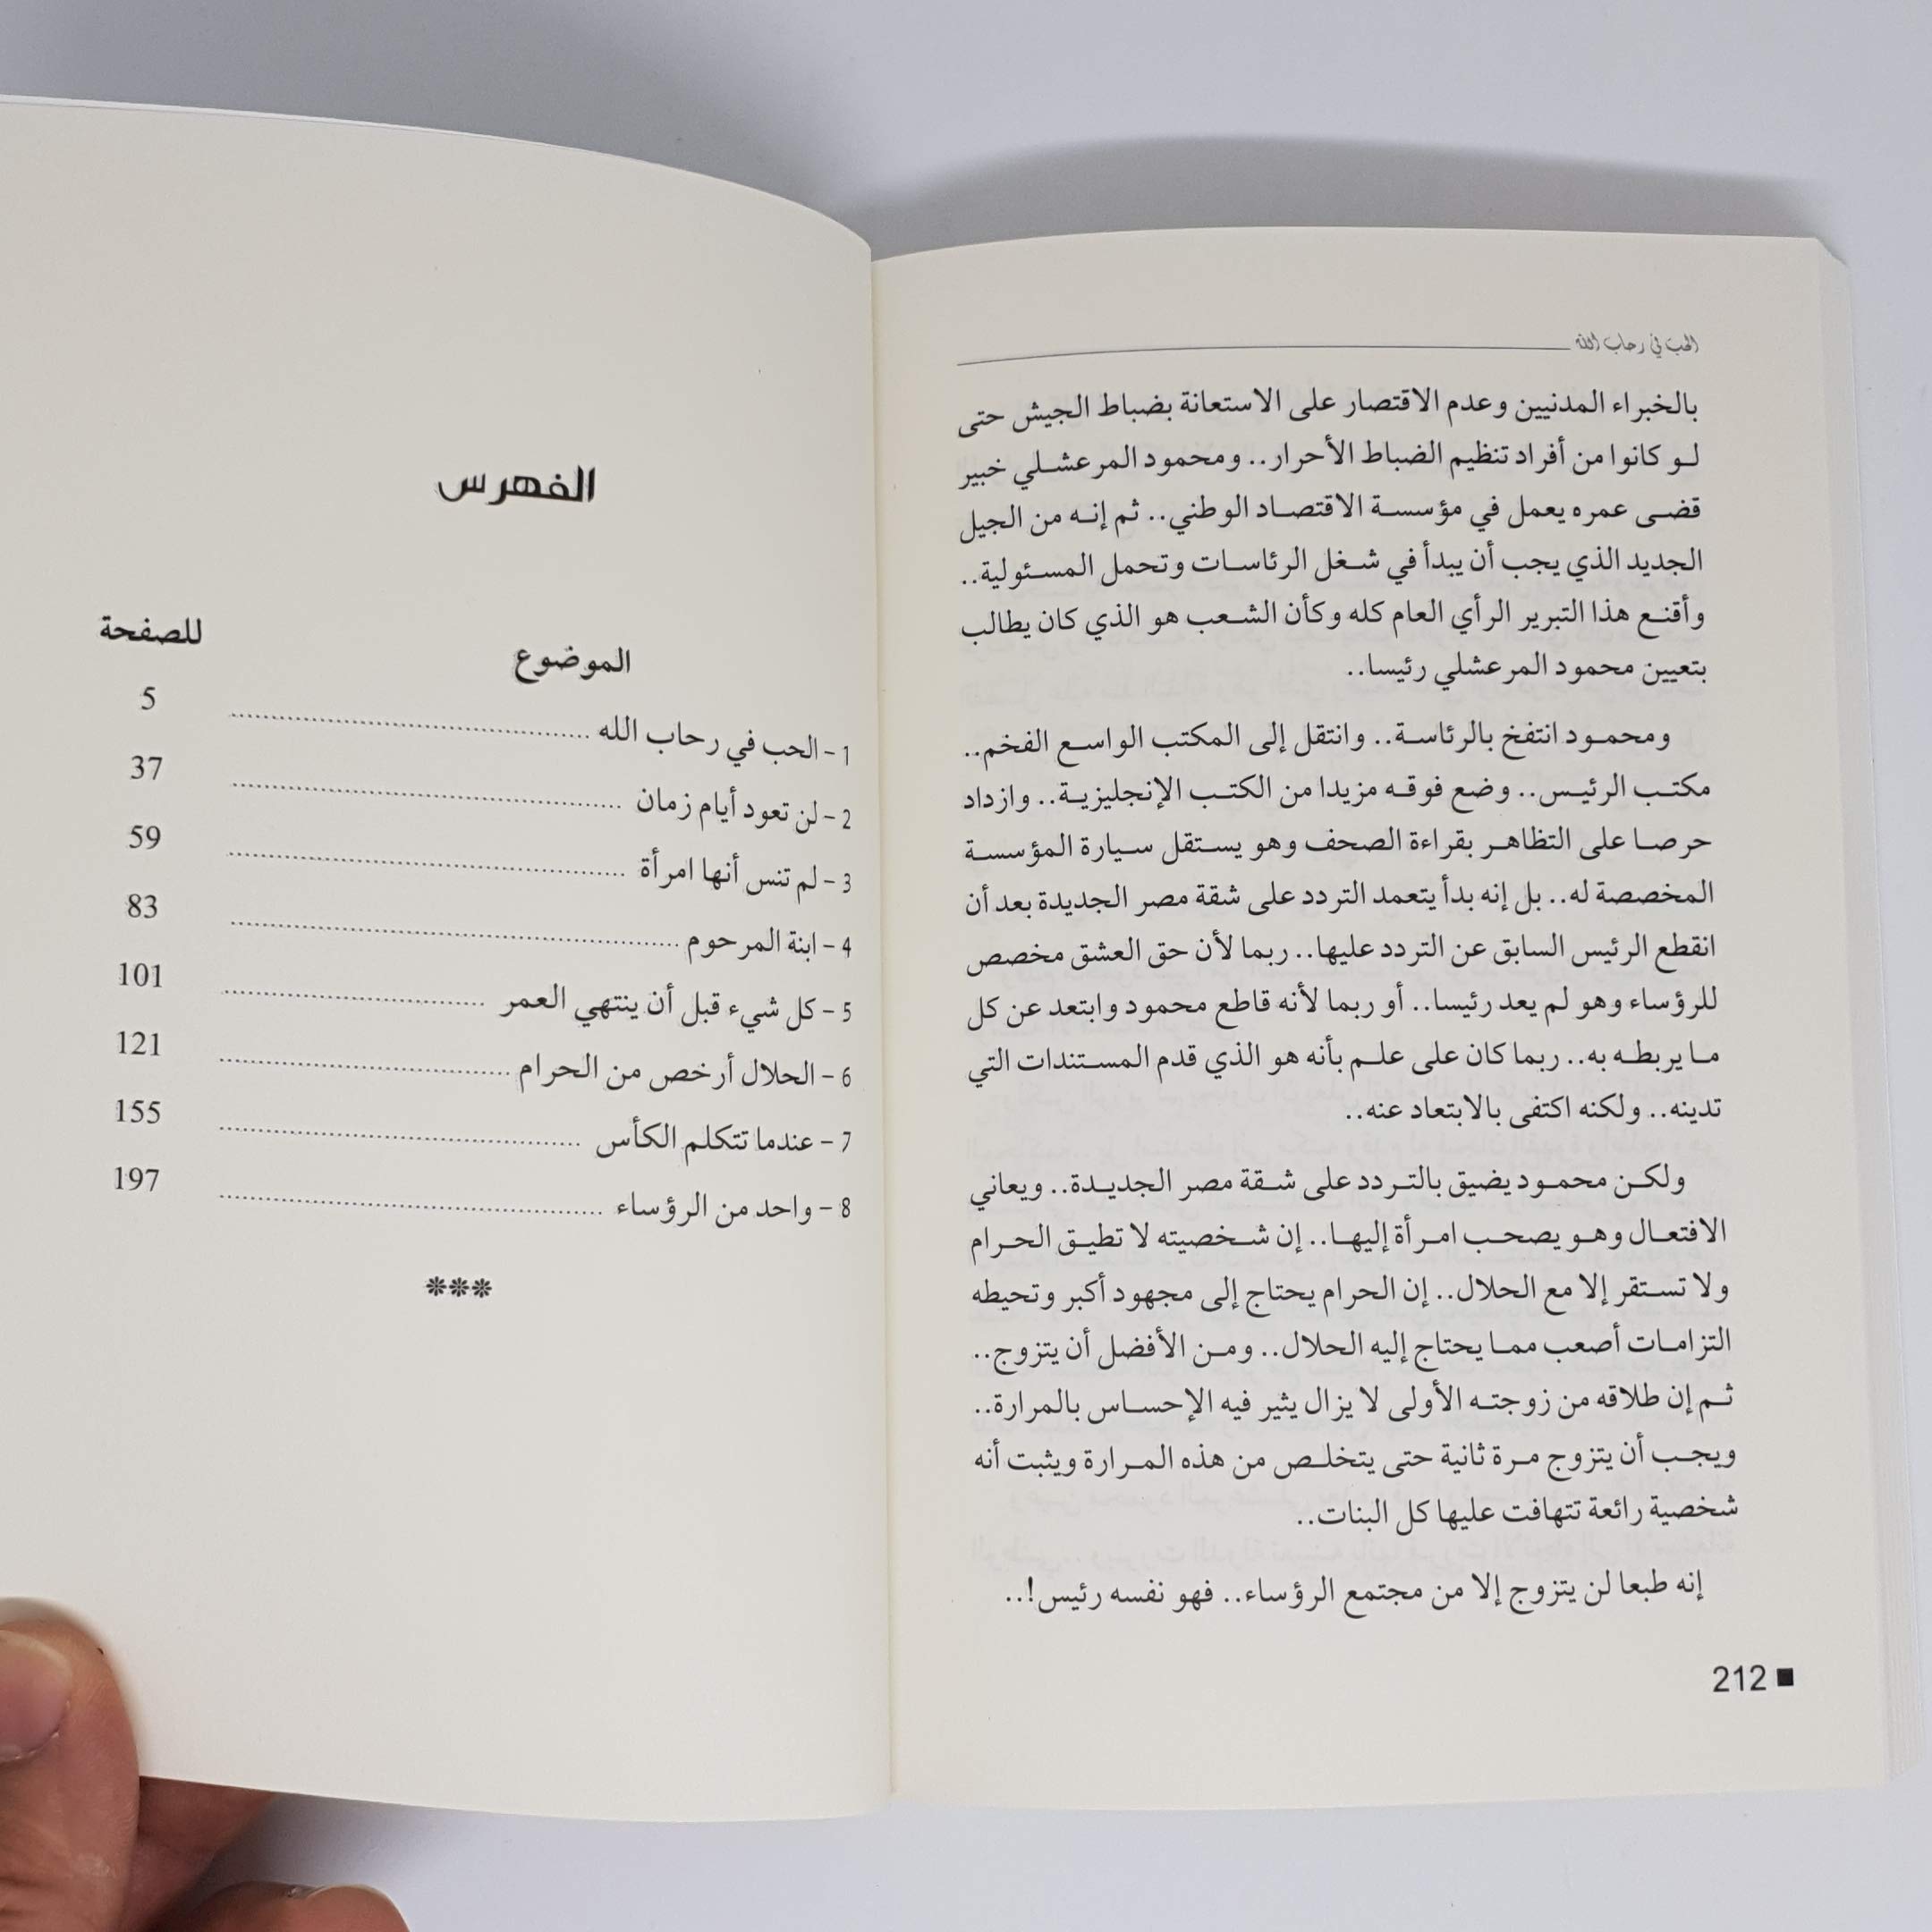 الحب في رحاب الله
بالخبراء المدنيين وعدم الاقتصار على الاستعانة بضباط الجيش حتى
لو كانوا من أفراد تنظيم الضباط الأحرار.. ومحمود المرعشلي خبير
قضى عمره يعمل في مؤسسة الاقتصاد الوطني.. ثم إنه من الجيل
الجديد الذي يجب أن يبدأ في شغل الرئاسات وتحمل المسئولية..
وأقنع هذا التبرير الرأي العام كله وكأن الشعب هو الذي كان يطالب
بتعيين محمود المرعشلي رئيسا..
ومحمود انتفخ بالرئاسة.. وانتقل إلى المكتب الواسع الفخم..
مكتب الرئيس.. وضع فوقه مزيدا من الكتب الإنجليزية.. وازداد
حرصا على التظاهر بقراءة الصحف وهو يستقل سيارة المؤسسة
المخصصة له.. بل إنه بدأ يتعمد التردد على شقة مصر الجديدة بعد أن
انقطع الرئيس السابق عن التردد عليها.. ربما لأن حق العشق مخصص
للرؤساء وهو لم يعد رئيسا.. أو ربما لأنه قاطع محمود وابتعد عن كل
ما يربطه به.. ربما كان على علم بأنه هو الذي قدم المستندات التي
تدينه.. ولكنه اكتفى بالابتعاد عنه..
ولكن محمود يضيق بالتردد على شقة مصر الجديدة.. ويعاني
الافتعال وهو يصحب امرأة إليها.. إن شخصيته لا تطيق الحرام
ولا تستقر إلا مع الحلال.. إن الحرام يحتاج إلى مجهود أكبر وتحيطه
التزامات أصعب مما يحتاج إليه الحلال.. ومن الأفضل أن يتزوج..
ثم إن طلاقه من زوجته الأولى لا يزال يثير فيه الإحساس بالمرارة..
ويجب أن يتزوج مرة ثانية حتى يتخلص من هذه المرارة ويثبت أنه
شخصية رائعة تتهافت عليها كل البنات..
إنه طبعا لن يتزوج إلا من مجتمع الرؤساء.. فهو نفسه رئيس!..
212
الفهرس
الموضوع للصفحة
1 - الحب في رحاب الله 5
2 - لن تعود أيام زمان 37
3 - لم تنس أنها امرأة 59
4 - ابنة المرحوم 83
5 - كل شيء قبل أن ينتهي العمر 101
6 - الحلال أرخص من الحرام 121
7 - عندما تتكلم الكأس 155
8 - واحد من الرؤساء 197
***